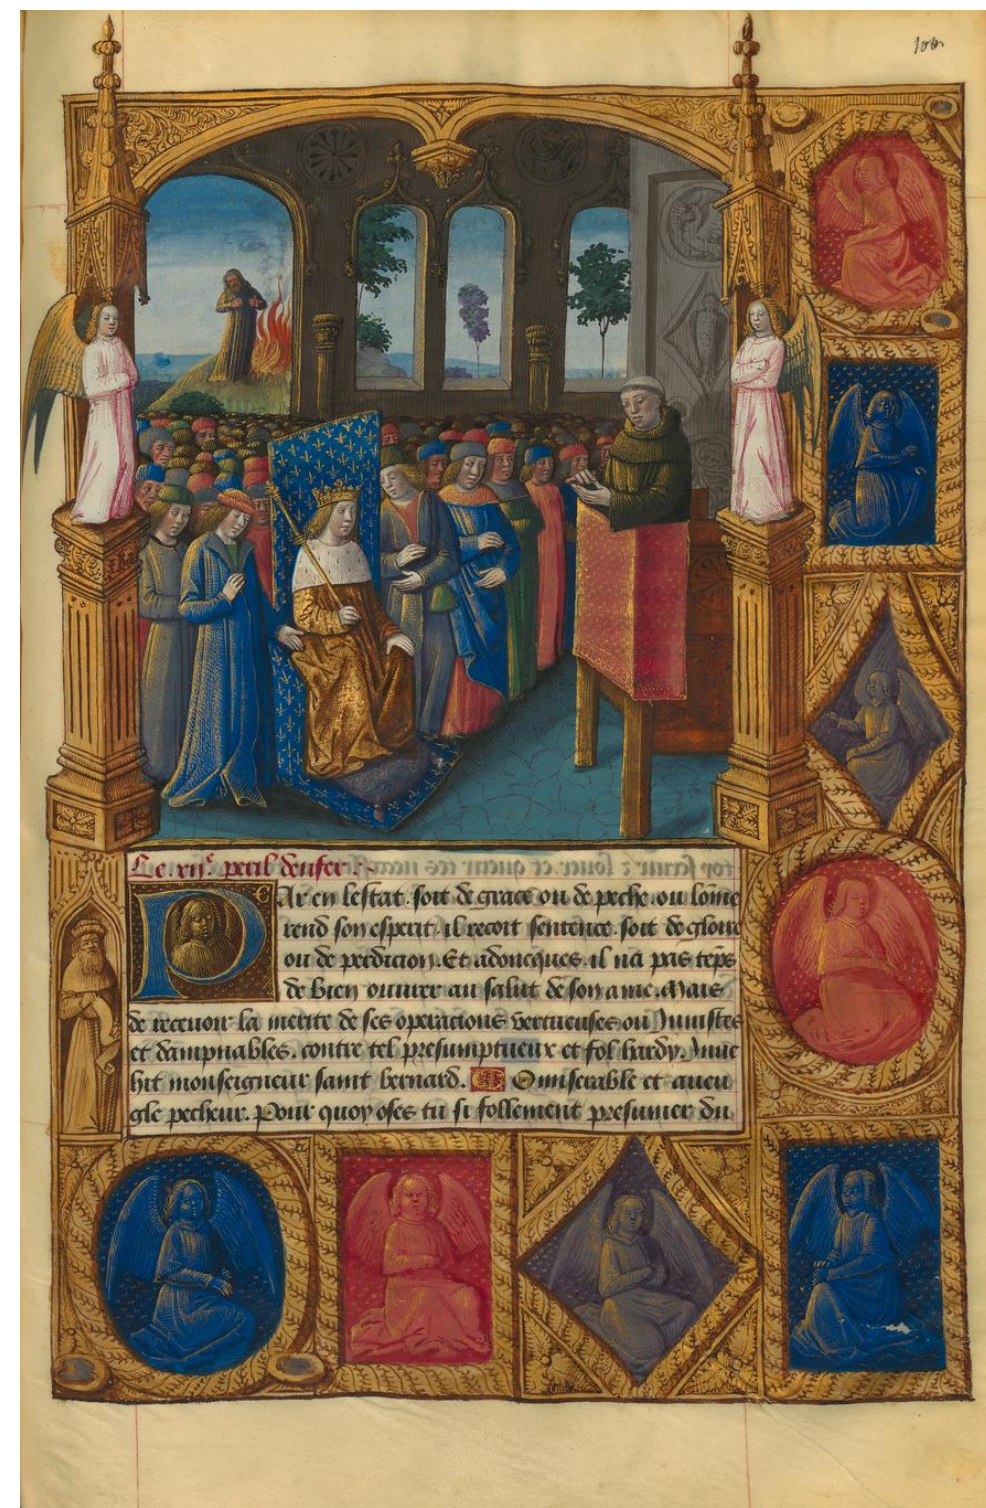 Le .xii.e peril denfer .
PAr en lestat . soit de grace ou de peche . ou lōme
rend son esperit / il recoit sentence . soit de gloire
ou de perdicion . Et adoncques . il na pas tēps
de bien ouurer au salut de son ame . Mais
de receuoir la merite de ses operacions vertueuses ou Iniustes
et dampnables . contre tel presumptueux et fol hardy . Inue
hit monseigneur saint bernard . O miserable et aueu
gle pecheur . Pour quoy oses tu si follement presumer du